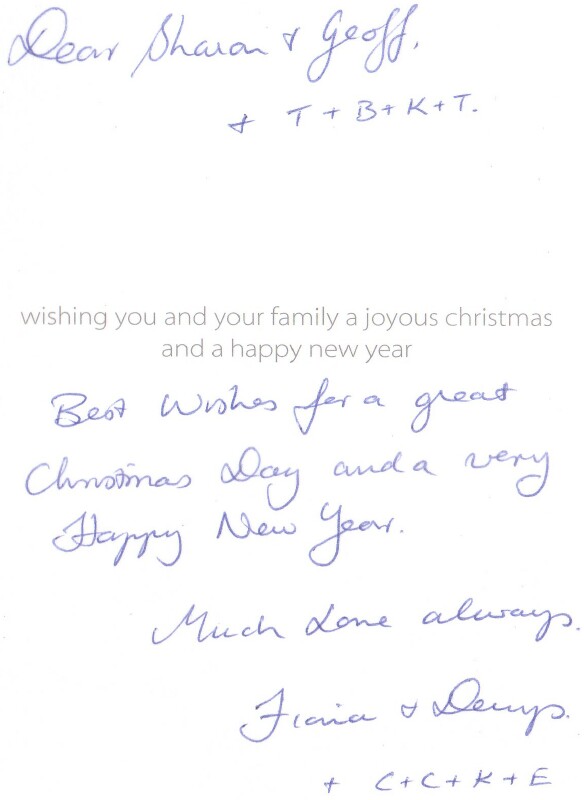 Dear Sharon & Geoff,
+ T + B + K + T.
wishing you and your family a joyous christmas
and a happy new year
Best Wishes for a great
Christmas Day and a very
Happy New Year.
Much Love always.
& Denys.
+ C + C + K + E